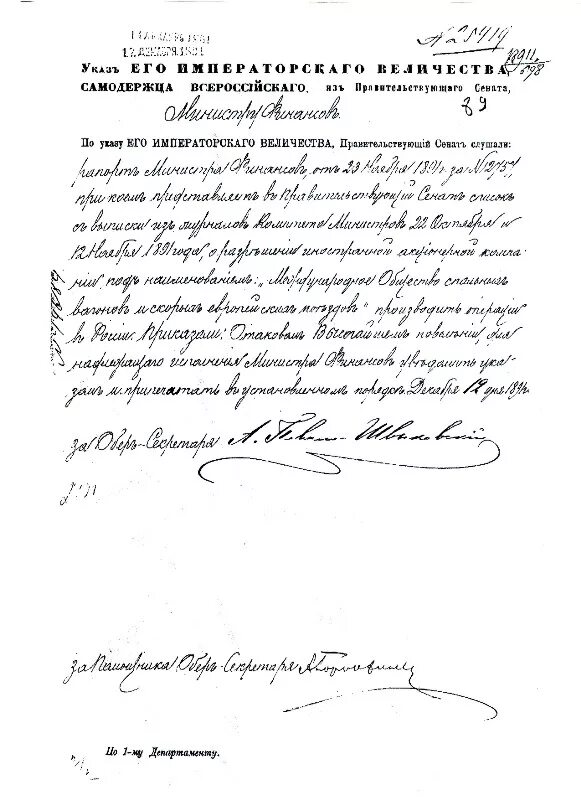 17 ДЕКАБРЯ 1891
№ 25419
Указъ ЕГО ИМПЕРАТОРСКАГО ВЕЛИЧЕСТВА
САМОДЕРЖЦА ВСЕРОССІЙСКАГО, изъ Правительствующаго Сената,
89
Министру Финансовъ.
По указу ЕГО ИМПЕРАТОРСКАГО ВЕЛИЧЕСТВА, Правительствующій Сенатъ слушали:
рапортъ Министра Финансовъ, отъ 23 Ноября 1891 г. за №
при коемъ представляетъ въ Правительствующій Сенатъ списокъ
съ выписки изъ журналовъ Комитета Министровъ 22 Октября и
12 Ноября 1891 года, о разрѣшеніи иностранной акціонерной компа-
ніи подъ наименованіемъ: „Международное Общество спальныхъ
вагоновъ и скорыхъ европейскихъ поѣздовъ" производить операціи
въ Россіи. Приказали: О таковомъ Высочайшемъ повелѣніи для
надлежащаго исполненія Министра Финансовъ увѣдомить ука-
зомъ и припечатать въ установленномъ порядкѣ. Декабря 12 дня 1891 г.
за Оберъ-Секретаря А.
за Помощника Оберъ-Секретаря
По 1-му Департаменту.